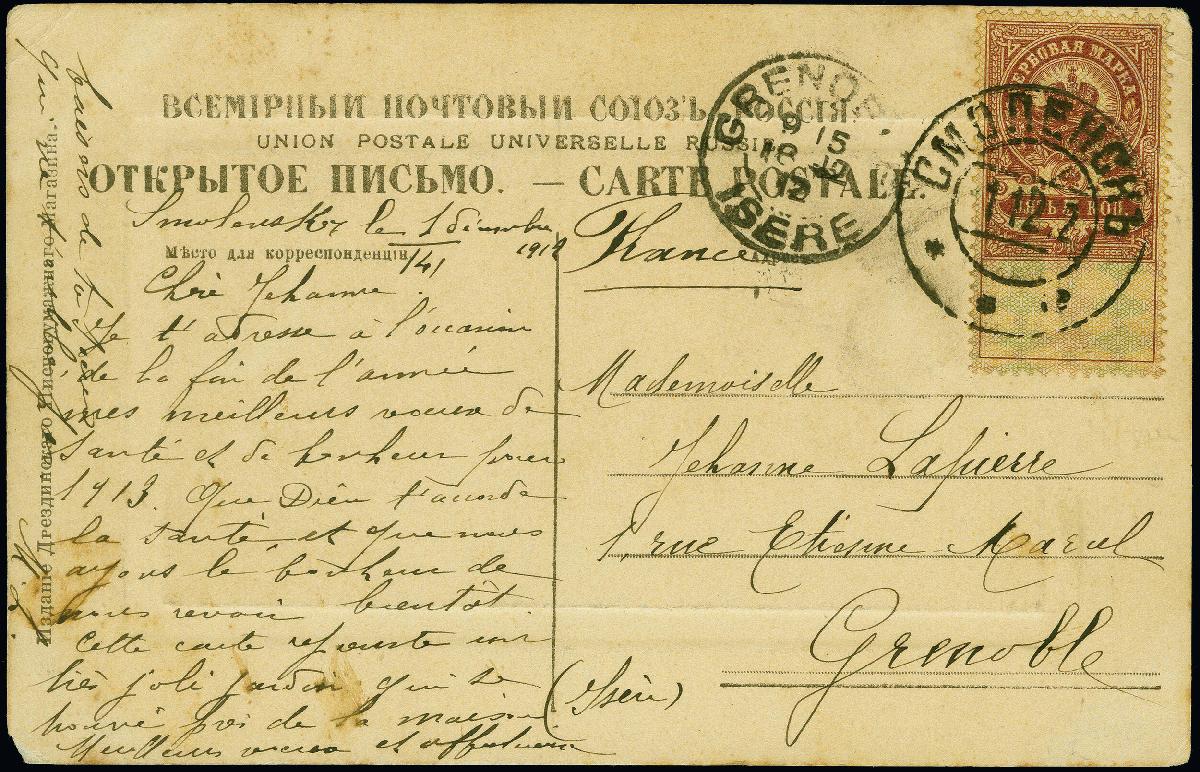 ВСЕМІРНЫЙ ПОЧТОВЫЙ СОЮЗЪ. РОССІЯ.
UNION POSTALE UNIVERSELLE RUSSIE
ОТКРЫТОЕ ПИСЬМО. — CARTE POSTALE.
Мѣсто для корреспонденціи
Smolensk, le 1 décembre
1912
14/
Chère Jehanne.
Je t'adresse à l'occasion
de la fin de l'année
mes meilleurs voeux de
santé et de bonheur pour
1913. Que Dieu t'accorde
la santé et que nous
ayons le bonheur de
nous revoir bientôt.
Cette carte représente un
très joli jardin qui se
trouve près de la maison
Meilleurs voeux et affectueux
baisers de ta
qui
France
Mademoiselle
Jehanne Lapierre
1, rue Etienne Marcel
Grenoble
(Isère)
GRENOBLE
9 15
18 12
12
ISÈRE
ГЕРБОВАЯ МАРКА
КОП.
СМОЛЕНСКЪ
1 12
Изданіе Дрезднинского магазина.